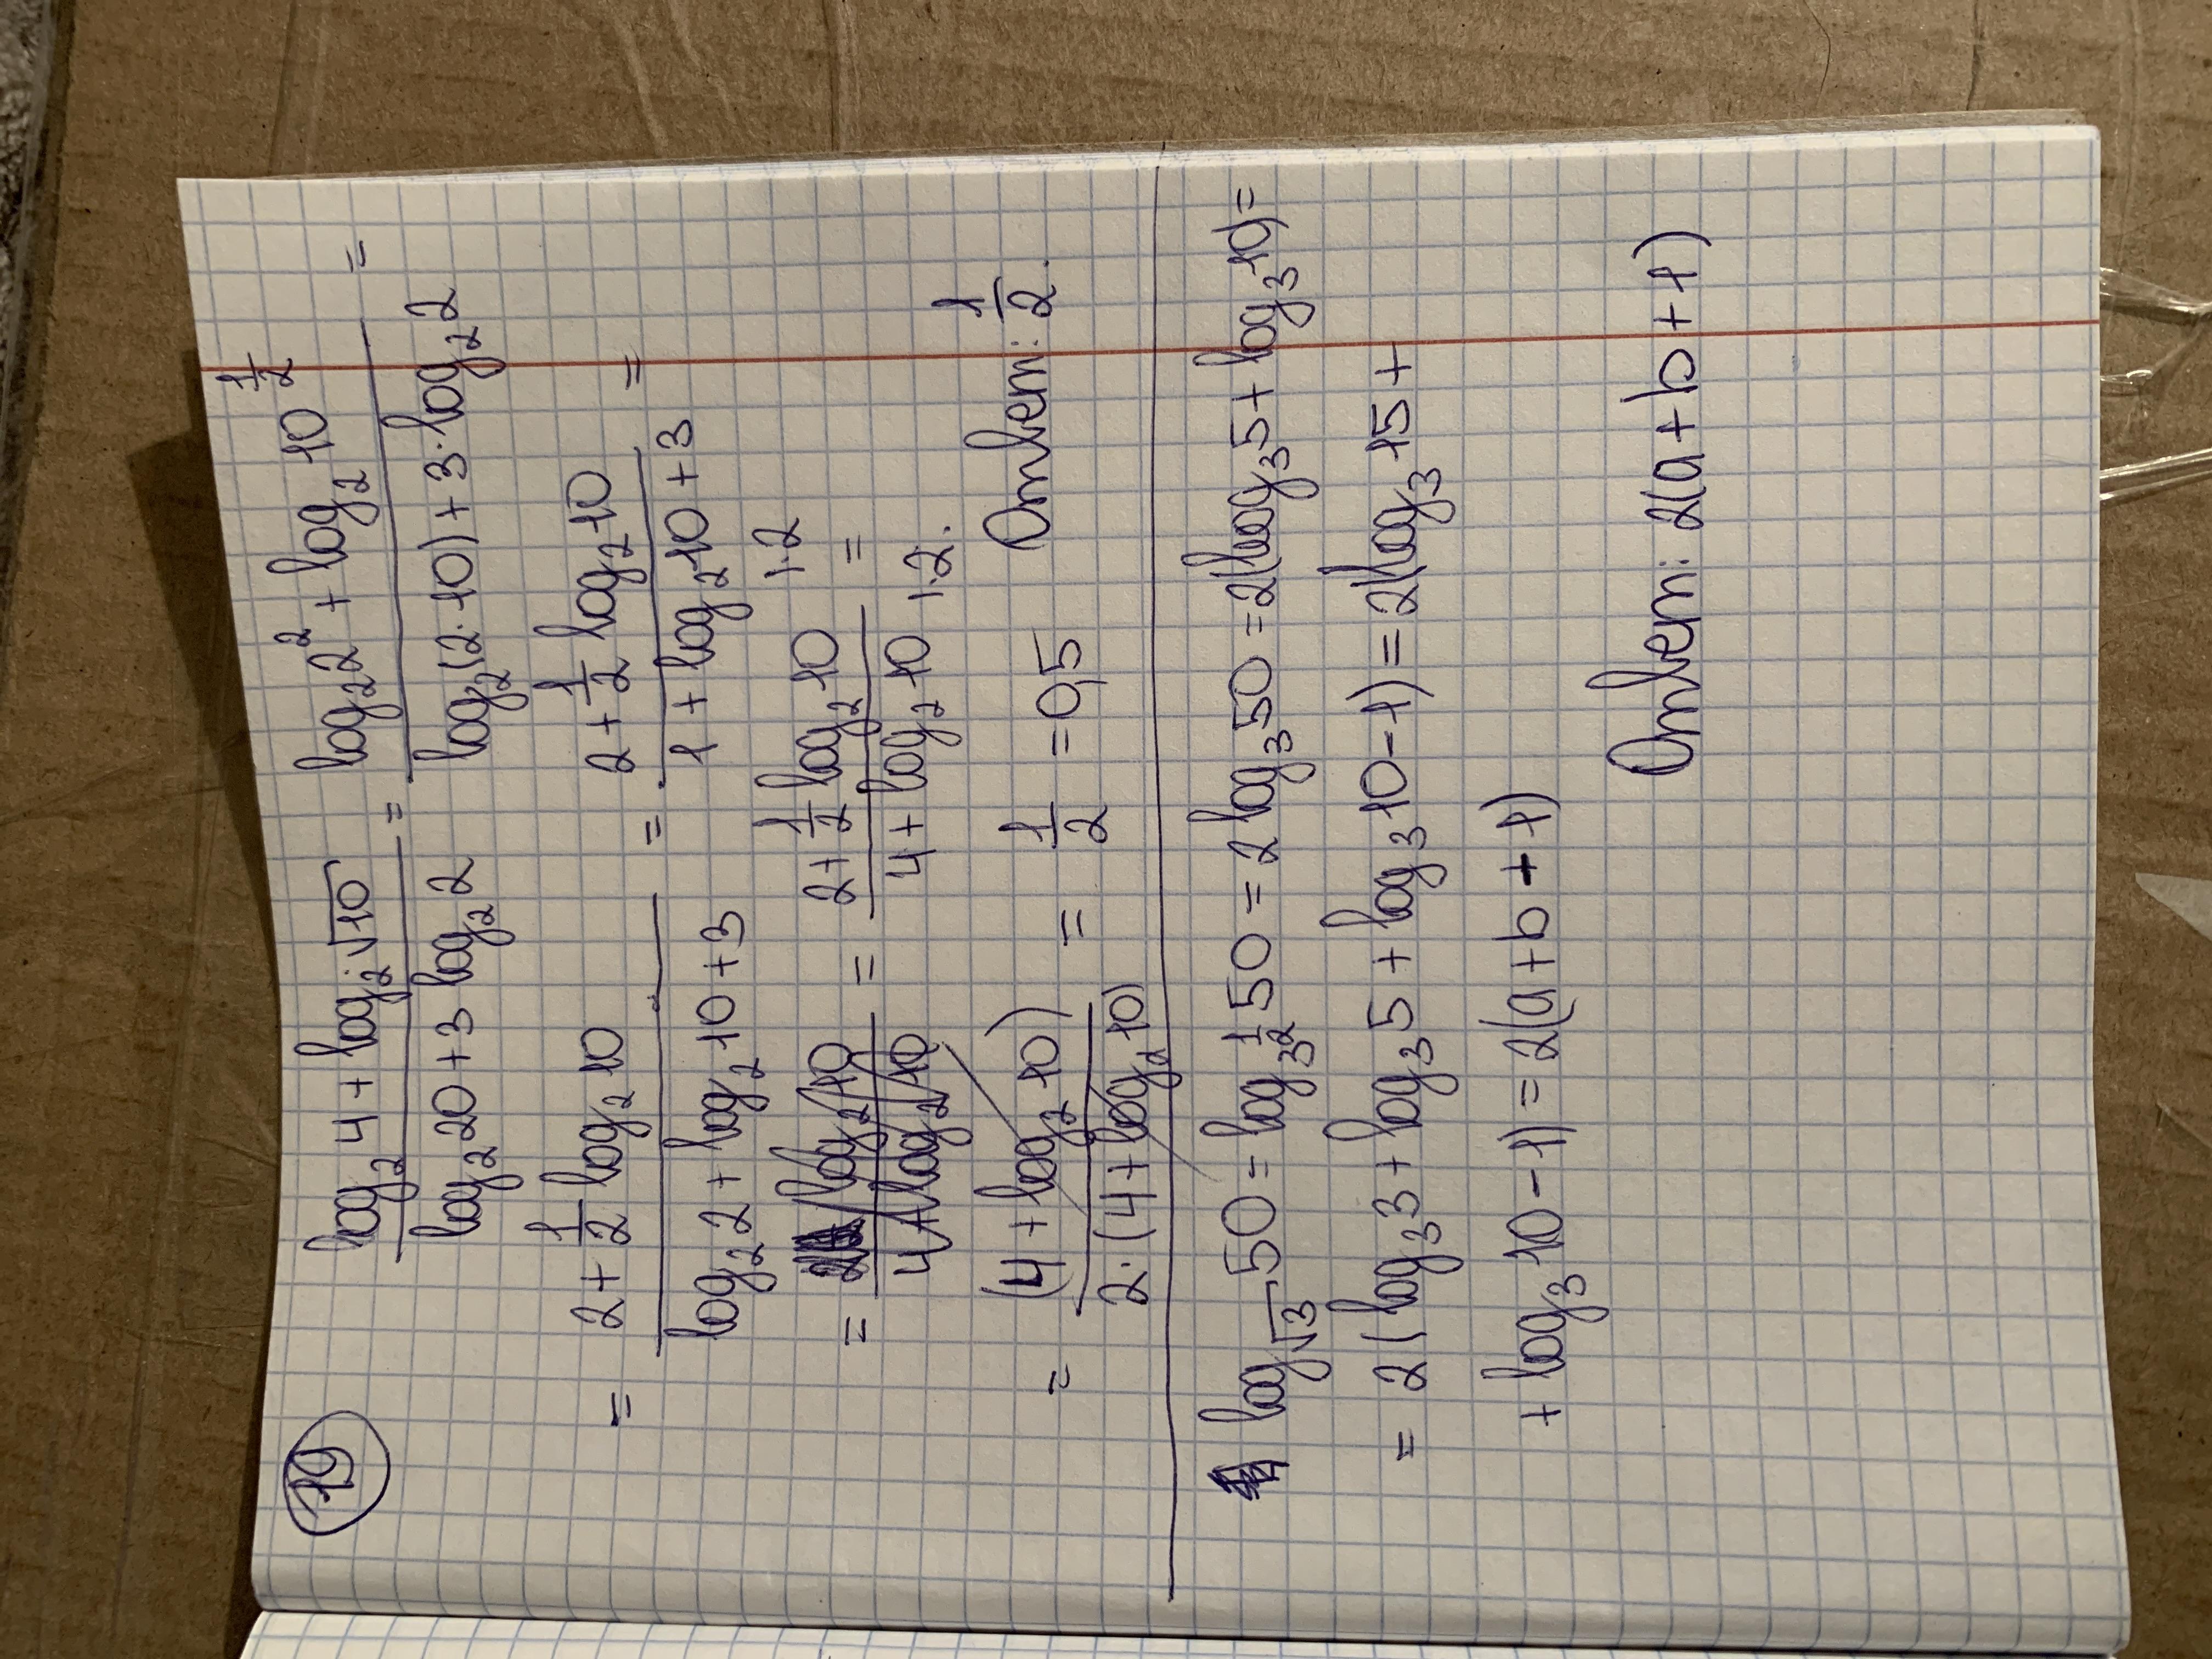 19
log₂4 + log₂√10 / log₂20 + 3 log₂2 = log₂2² + log₂10^(1/2) / log₂(2·10) + 3·log₂2 =
= 2 + 1/2 log₂10 / log₂2 + log₂10 + 3 = 2 + 1/2 log₂10 / 1 + log₂10 + 3 =
= log₂10 / 4 + log₂10 = 2 + 1/2 log₂10 / 4 + log₂10 = |·2 |·2.
= (4 + log₂10) / 2·(4 + log₂10) = 1/2 = 0,5 Ответ: 1/2.
log_√3 50 = log_3^(1/2) 50 = 2 log₃50 = 2(log₃5 + log₃10) =
= 2(log₃3 + log₃5 + log₃10 - 1) = 2(log₃15 +
+ log₃10 - 1) = 2(a + b + 1)
Ответ: 2(a + b + 1)